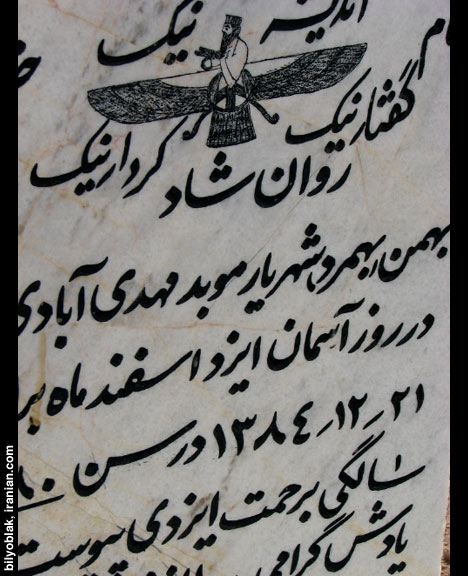 اندیشه نیک
گفتار نیک کردار نیک
روان شاد
بهمن (بهمرد) شهریار موبد مهدی آبادی
در روز آسمان ایزد اسفند ماه
۲۱ر۱۲ر۱۳۸۴ در سن ۸۰
سالگی برحمت ایزدی پیوست
یادش گرامی
bilyoblak, iranian.com